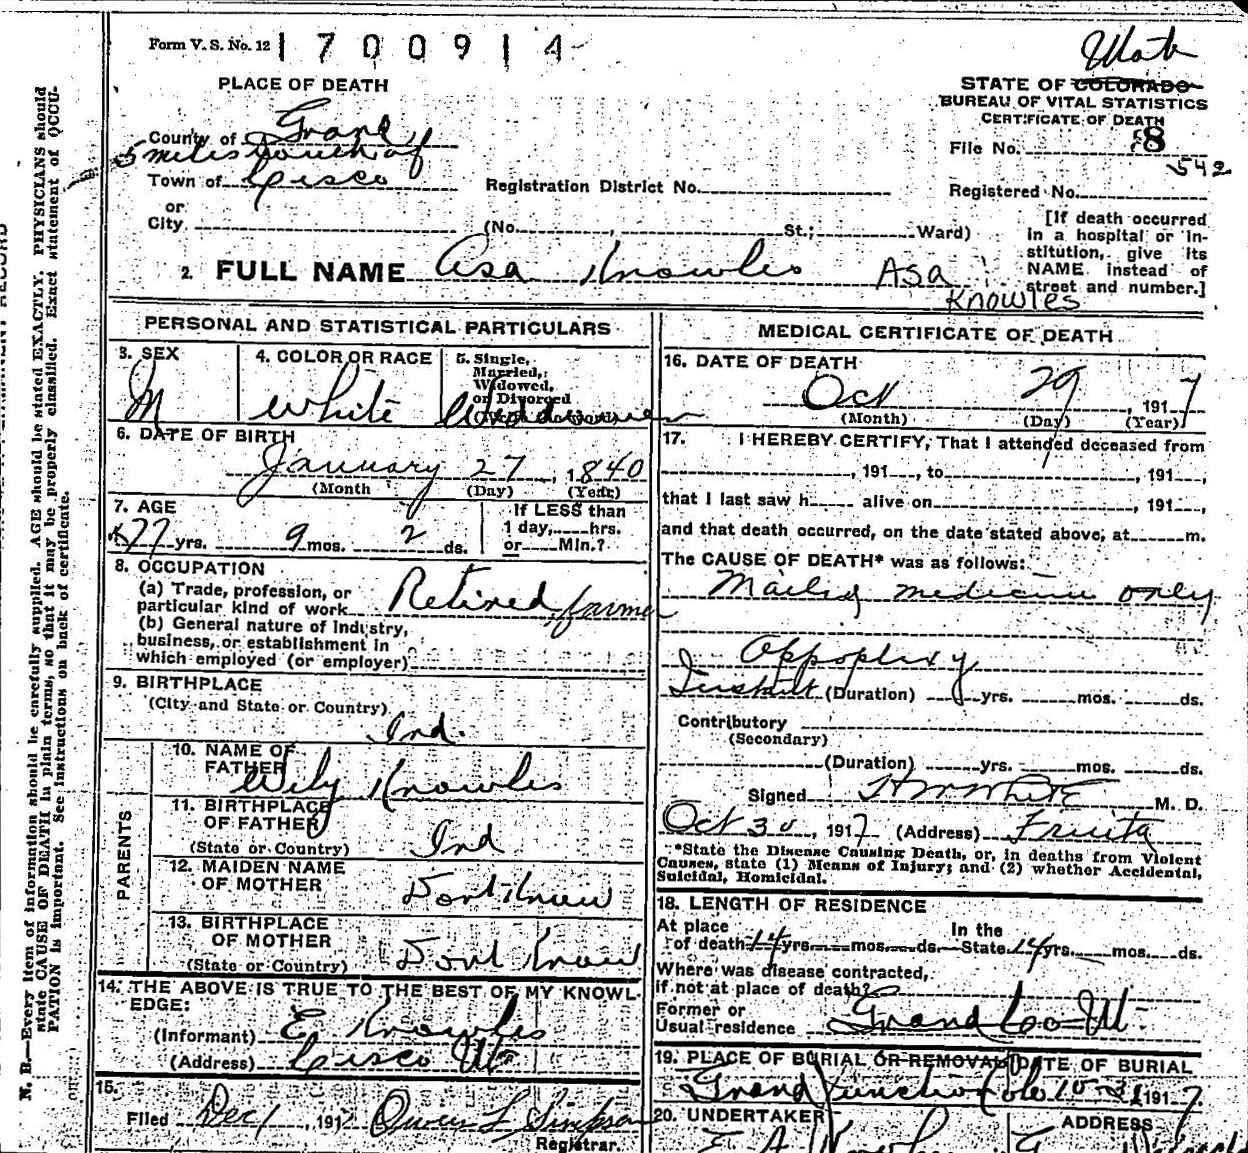 Form V. S. No. 12 1700914
Utah
STATE OF COLORADO
BUREAU OF VITAL STATISTICS
CERTIFICATE OF DEATH
PLACE OF DEATH
County of Grand
5 miles South of
Town of Cisco
or
City
Registration District No.
File No. 8
542
Registered No.
(No. , St.; Ward)
[If death occurred
in a hospital or in-
stitution, give its
NAME instead of
street and number.]
2. FULL NAME Asa Knowles Asa
Knowles
PERSONAL AND STATISTICAL PARTICULARS
3. SEX
M
4. COLOR OR RACE
White
5. Single,
Married,
Widowed,
or Divorced
Widdower
6. DATE OF BIRTH
January 27, 1840
(Month (Day) (Year)
7. AGE
77 yrs. 9 mos. 2 ds.
If LESS than
1 day, hrs.
or Min.?
8. OCCUPATION
(a) Trade, profession, or
particular kind of work Retired farmer
(b) General nature of Industry,
business, or establishment in
which employed (or employer)
9. BIRTHPLACE
(City and State or Country)
Ind.
PARENTS
10. NAME OF
FATHER Wily Knowles
11. BIRTHPLACE
OF FATHER
(State or Country) Ind
12. MAIDEN NAME
OF MOTHER Dont Know
13. BIRTHPLACE
OF MOTHER
(State or Country) Dont Know
14. THE ABOVE IS TRUE TO THE BEST OF MY KNOWL-
EDGE:
(Informant) E Knowles
(Address) Cisco Ut
15.
Filed Dec 1, 191 Owen L Simpson
Registrar.
MEDICAL CERTIFICATE OF DEATH
16. DATE OF DEATH
Oct 29, 1917
(Month) (Day) (Year)
17. I HEREBY CERTIFY, That I attended deceased from
, 191 , to , 191 ,
that I last saw h alive on , 191 ,
and that death occurred, on the date stated above, at m.
The CAUSE OF DEATH* was as follows:
medicine only
Appoplexy
(Duration) yrs. mos. ds.
Contributory
(Secondary)
(Duration) yrs. mos. ds.
Signed H W White M. D.
Oct 30, 1917 (Address) Fruita
*State the Disease Causing Death, or, in deaths from Violent
Causes, state (1) Means of Injury; and (2) whether Accidental,
Suicidal, Homicidal.
18. LENGTH OF RESIDENCE
At place In the
of death 14 yrs. mos. ds. State 14 yrs. mos. ds.
Where was disease contracted,
if not at place of death?
Former or
Usual residence Grand Co Ut.
19. PLACE OF BURIAL OR REMOVAL DATE OF BURIAL
Grand Junction Colo 10-31 1917
20. UNDERTAKER ADDRESS
N. B.—Every item of information should be carefully supplied. AGE should be stated EXACTLY. PHYSICIANS should
state CAUSE OF DEATH in plain terms, so that it may be properly classified. Exact statement of OCCU-
PATION is important. See instructions on back of certificate.